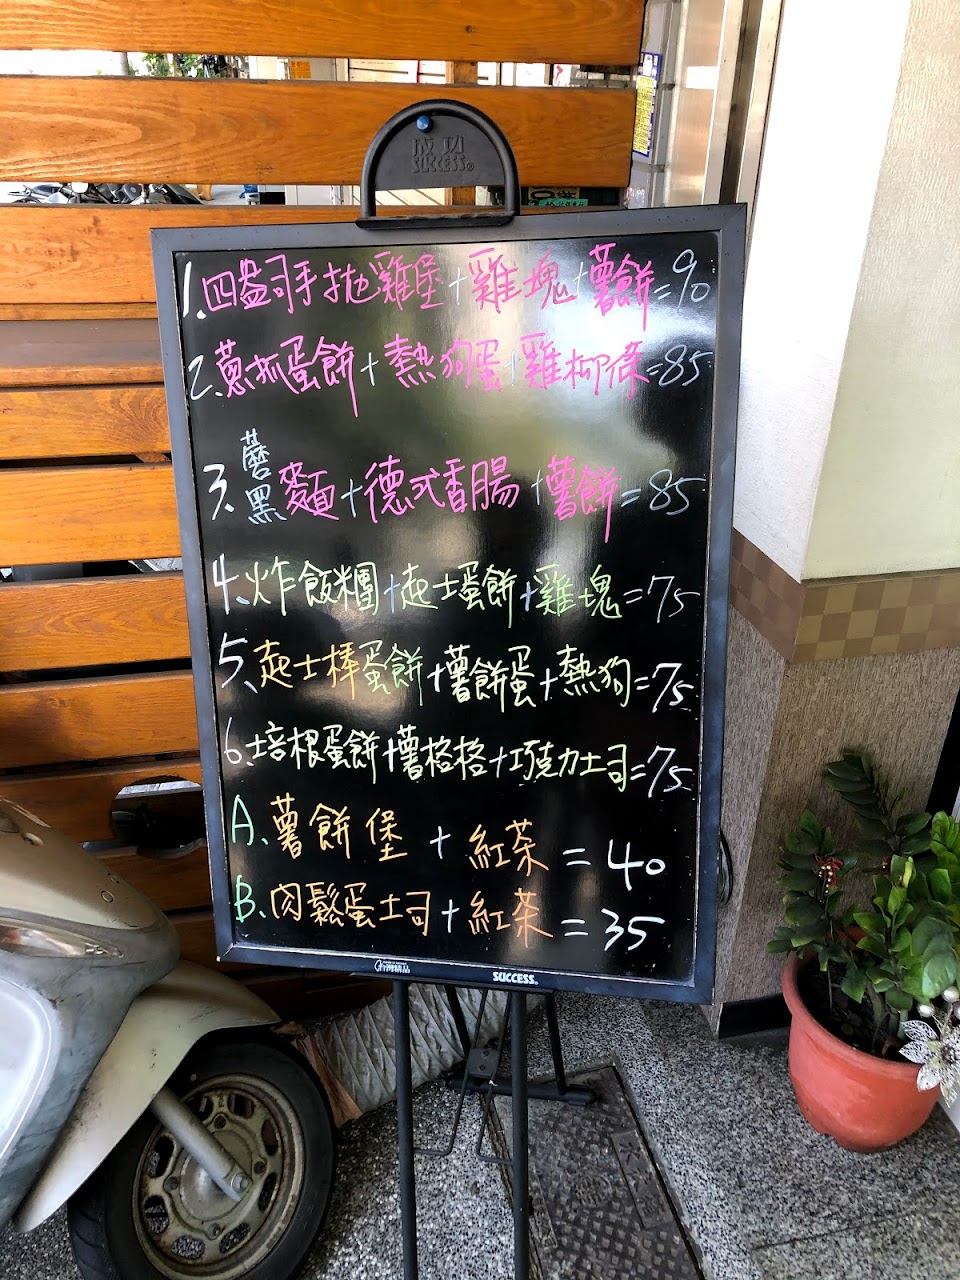 成功
SUCCESS®
1.四盎司手拋雞堡+雞塊+薯餅=90
2.蔥抓蛋餅+熱狗蛋+雞柳條=85
3.蘑黑麵+德式香腸+薯餅=85
4.炸飯糰+起士蛋餅+雞塊=75
5.起士棒蛋餅+薯餅蛋+熱狗=75
6.培根蛋餅+薯格格+巧克力土司=75
A.薯餅堡+紅茶=40
B.肉鬆蛋土司+紅茶=35
SUCCESS®